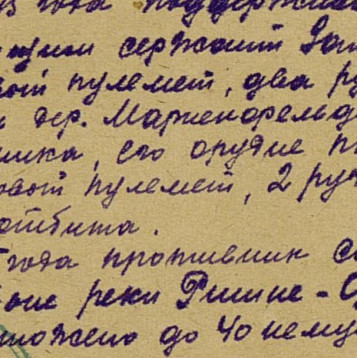 года поддержива
щим сержант За
вой пулемет, два ру
дер. Мариенфельд
ника, его орудие п
овой пулемет, 2 руч
отбита.
года противник с
оне реки Ришне-
тожено до 40 нему